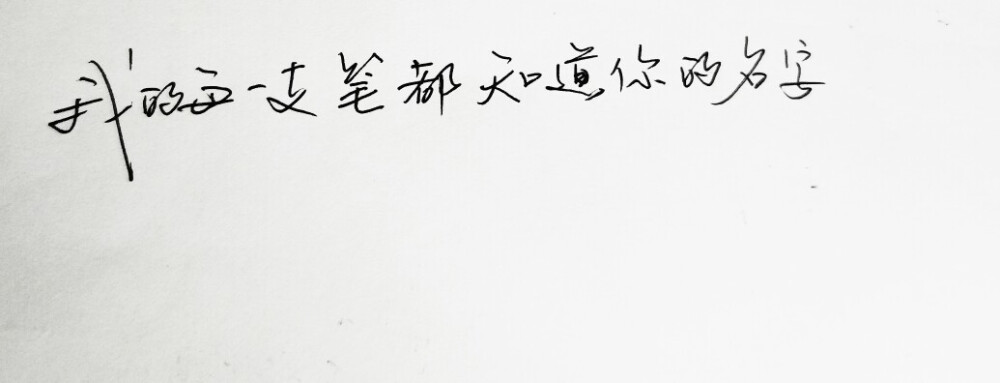 我的每一支笔都知道你的名字